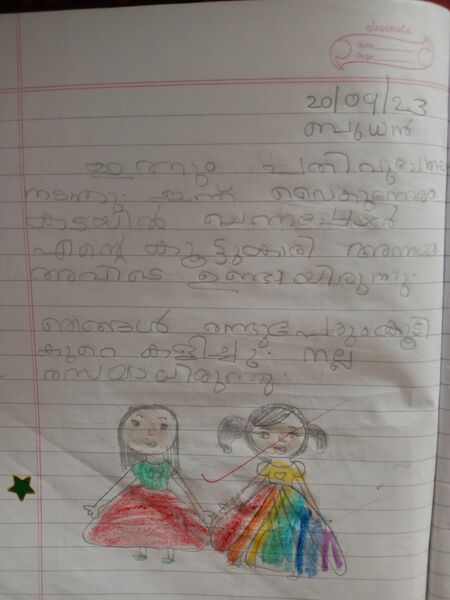 classmate
Date
Page
20/09/23
ബുധൻ
ഇന്നും പതിവുപോലെ
നടന്നു. ഇന്ന് വൈകുന്നേരം
കടയിൽ ചെന്നപ്പോൾ
എന്റെ കൂട്ടുകാരി അന്ന
അവിടെ ഉണ്ടായിരുന്നു.
ഞങ്ങൾ രണ്ടുപേരുംകൂടി
കുറെ കളിച്ചു. നല്ല
രസമായിരുന്നു.